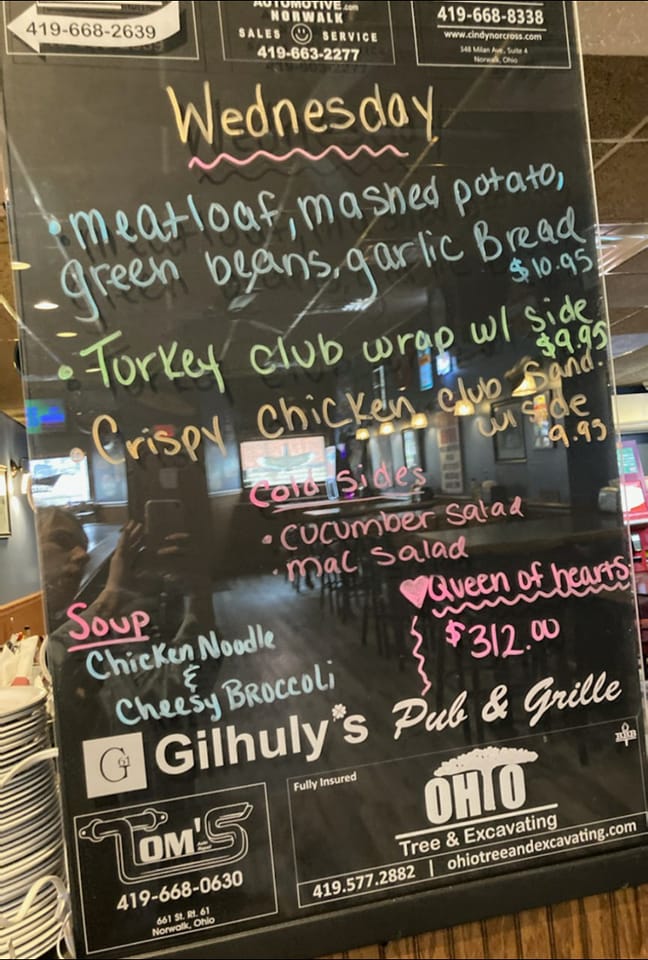 419-668-2639
AUTOMOTIVE.com
NORWALK
SALES SERVICE
419-663-2277
419-668-8338
www.cindynorcross.com
348 Milan Ave., Suite 4
Norwalk, Ohio
Wednesday
• meatloaf, mashed potato,
green beans, garlic Bread
$10.95
• Turkey club wrap w/ side
$9.95
• Crispy chicken club sand.
w/ side
9.95
Cold sides
• cucumber salad
• mac salad
Queen of hearts
$312.00
Soup
Chicken Noodle
&
Cheesy Broccoli
G61
Gilhuly's Pub & Grille
TOM'S
Auto Repair
419-668-0630
661 St. Rt. 61
Norwalk, Ohio
Fully Insured
BBB
OHIO
Tree & Excavating
419.577.2882 | ohiotreeandexcavating.com